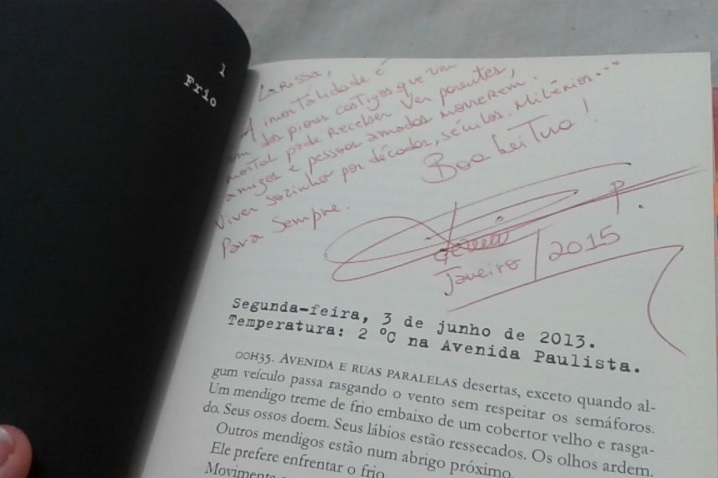 1
Frio
Larissa,
A imortalidade é
um dos piores castigos que um
mortal pode receber. Ver parentes,
amigos e pessoas amadas morrerem.
Viver sozinho por décadas, séculos. Milênios...
Para sempre.
Boa leitura!
P.
Janeiro/2015
Segunda-feira, 3 de junho de 2013.
Temperatura: 2 ºC na Avenida Paulista.
00H35. AVENIDA E RUAS PARALELAS desertas, exceto quando al-
gum veículo passa rasgando o vento sem respeitar os semáforos.
Um mendigo treme de frio embaixo de um cobertor velho e rasga-
do. Seus ossos doem. Seus lábios estão ressecados. Os olhos ardem.
Outros mendigos estão num abrigo próximo.
Ele prefere enfrentar o frio